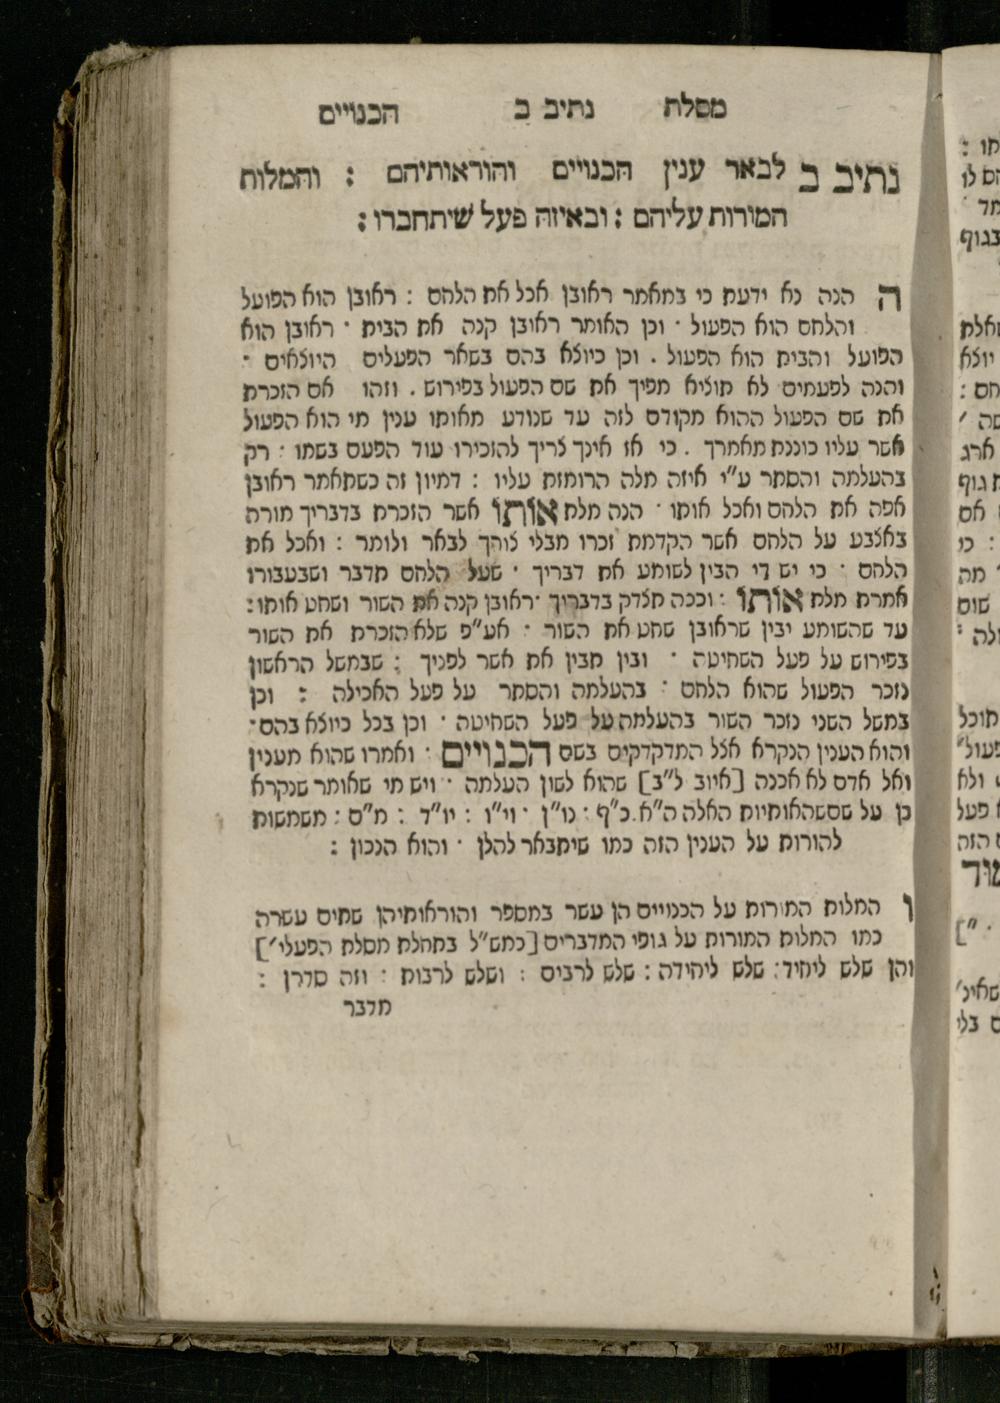 מסלת נתיב ב הכנויים
נתיב ב לבאר ענין הכנויים והוראותיהם : והמלות
המורות עליהם : ובאיזה פעל שיתחברו :
ה הנה נא ידעת כי במאמר ראובן אכל את הלחם : ראובן הוא הפועל
והלחם הוא הפעול · וכן האומר ראובן קנה את הבית · ראובן הוא
הפועל והבית הוא הפעול . וכן כיוצא בהם בשאר הפעלים היוצאים ·
והנה לפעמים לא תוציא מפיך את שם הפעול בפירוש . וזהו אם הזכרת
את שם הפעול ההוא מקודם לזה עד שנודע מאותו ענין מי הוא הפעול
אשר עליו כוננת מאמרך . כי אז אינך צריך להזכירו עוד הפעם בשמו : רק
בהעלמה והסתר ע"י איזה מלה הרומזת עליו : דמיון זה כשתאמר ראובן
אפה את הלחם ואכל אותו · הנה מלת אותו אשר הזכרת בדבריך מורה
באצבע על הלחם אשר הקדמת זכרו מבלי צורך לבאר ולומר : ואכל את
הלחם · כי יש די הבין לשומע את דבריך · שעל הלחם תדבר ושבעבורו
אמרת מלת אותו : וככה תצדק בדבריך · ראובן קנה את השור ושחט אותו :
עד שהשומע יבין שראובן שחט את השור · אע"פ שלא הזכרת את השור
בפירוש על פעל השחיטה · ובין תבין את אשר לפניך : שבמשל הראשון
נזכר הפעול שהוא הלחם · בהעלמה והסתר על פעל האכילה : וכן
במשל השני נזכר השור בהעלמה על פעל השחיטה · וכן בכל כיוצא בהם ·
והוא הענין הנקרא אצל המדקדקים בשם הכנויים · ואמרו שהוא מענין
ואל אדם לא אכנה [איוב ל"ב] שהוא לשון העלמה · ויש מי שאומר שנקרא
כן על שםשהאותיות האלה ה"א . כ"ף : נו"ן · וי"ו : יו"ד : מ"ם : משמשות
להורות על הענין הזה כמו שיתבאר להלן · והוא הנכון :
ו המלות המורות על הכנויים הן עשר במספר והוראותיהן שתים עשרה
כמו המלות המורות על גופי המדברים [כמש"ל בתחלת מסלת הפעלי']
והן שלש ליחיד : שלש ליחידה : שלש לרבים : ושלש לרבות : וזה סדרן :
מדבר